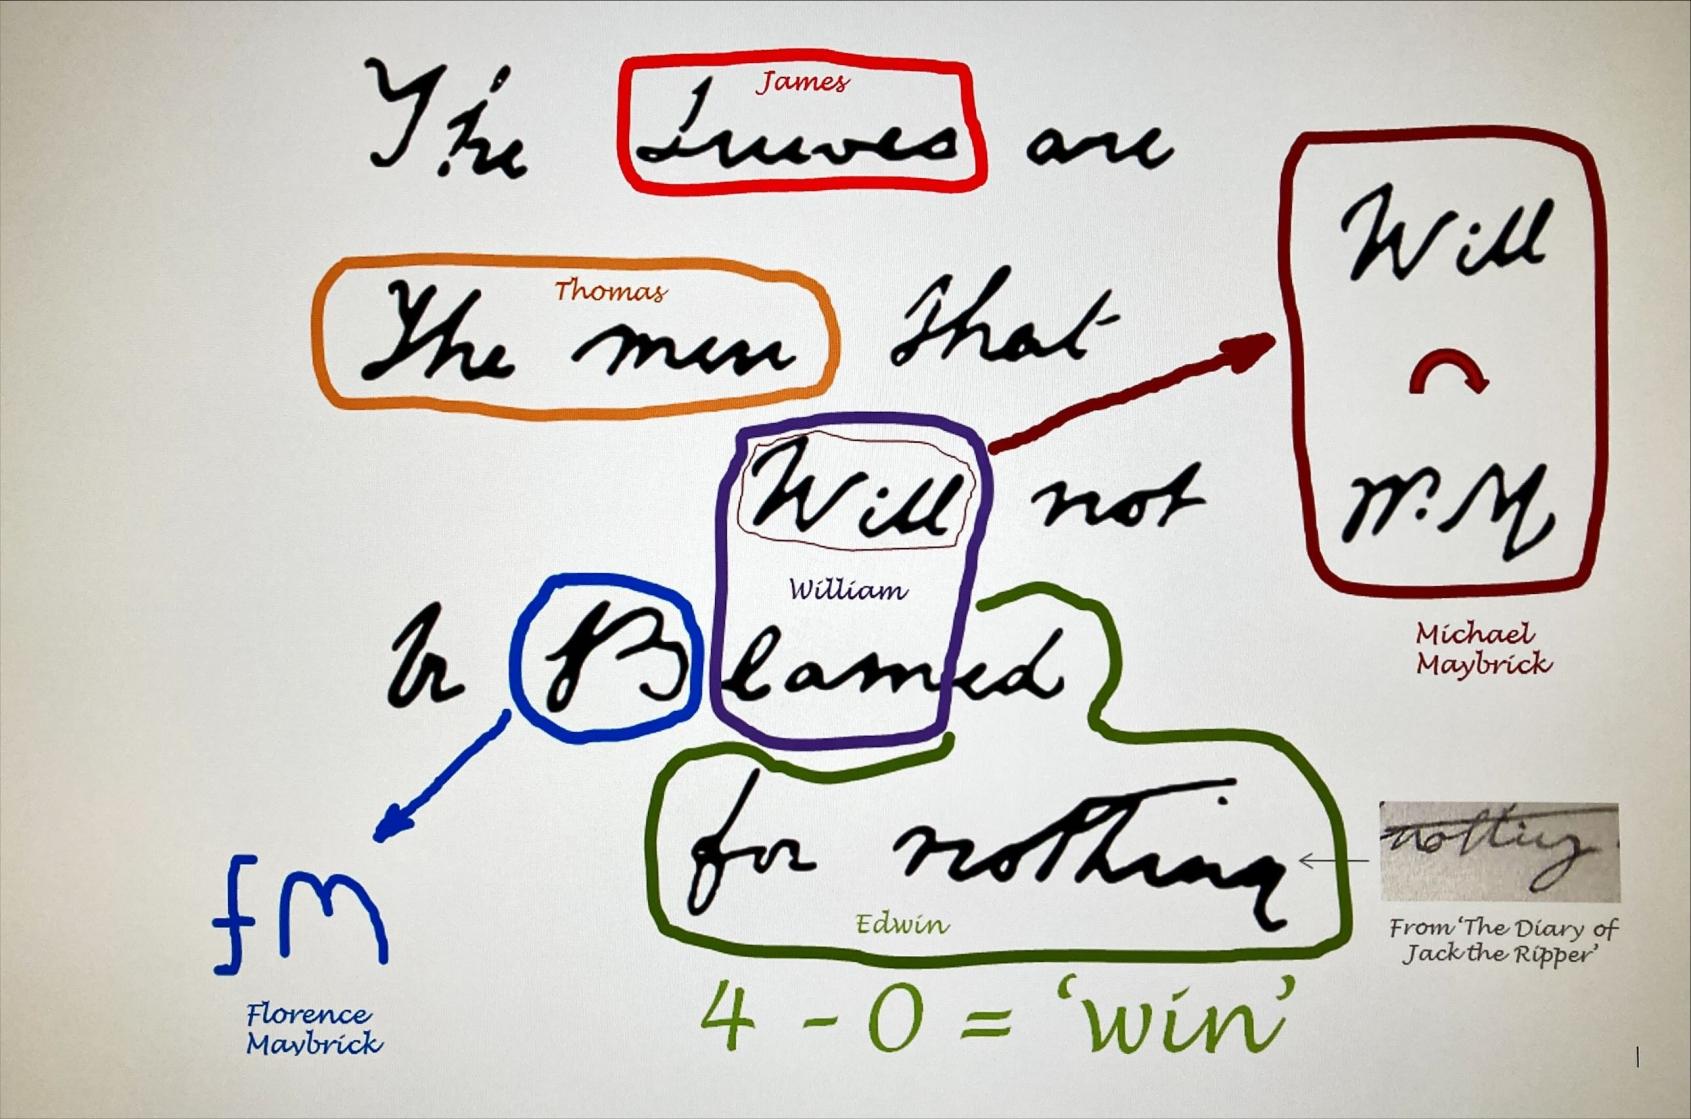 James
The Juwes are
Thomas
The men that
Will
Will not
W.M
William
Be Blamed
Michael
Maybrick
for nothing
nothing
Edwin
From 'The Diary of
Jack the Ripper'
fM
Florence
Maybrick
4 - 0 = 'win'